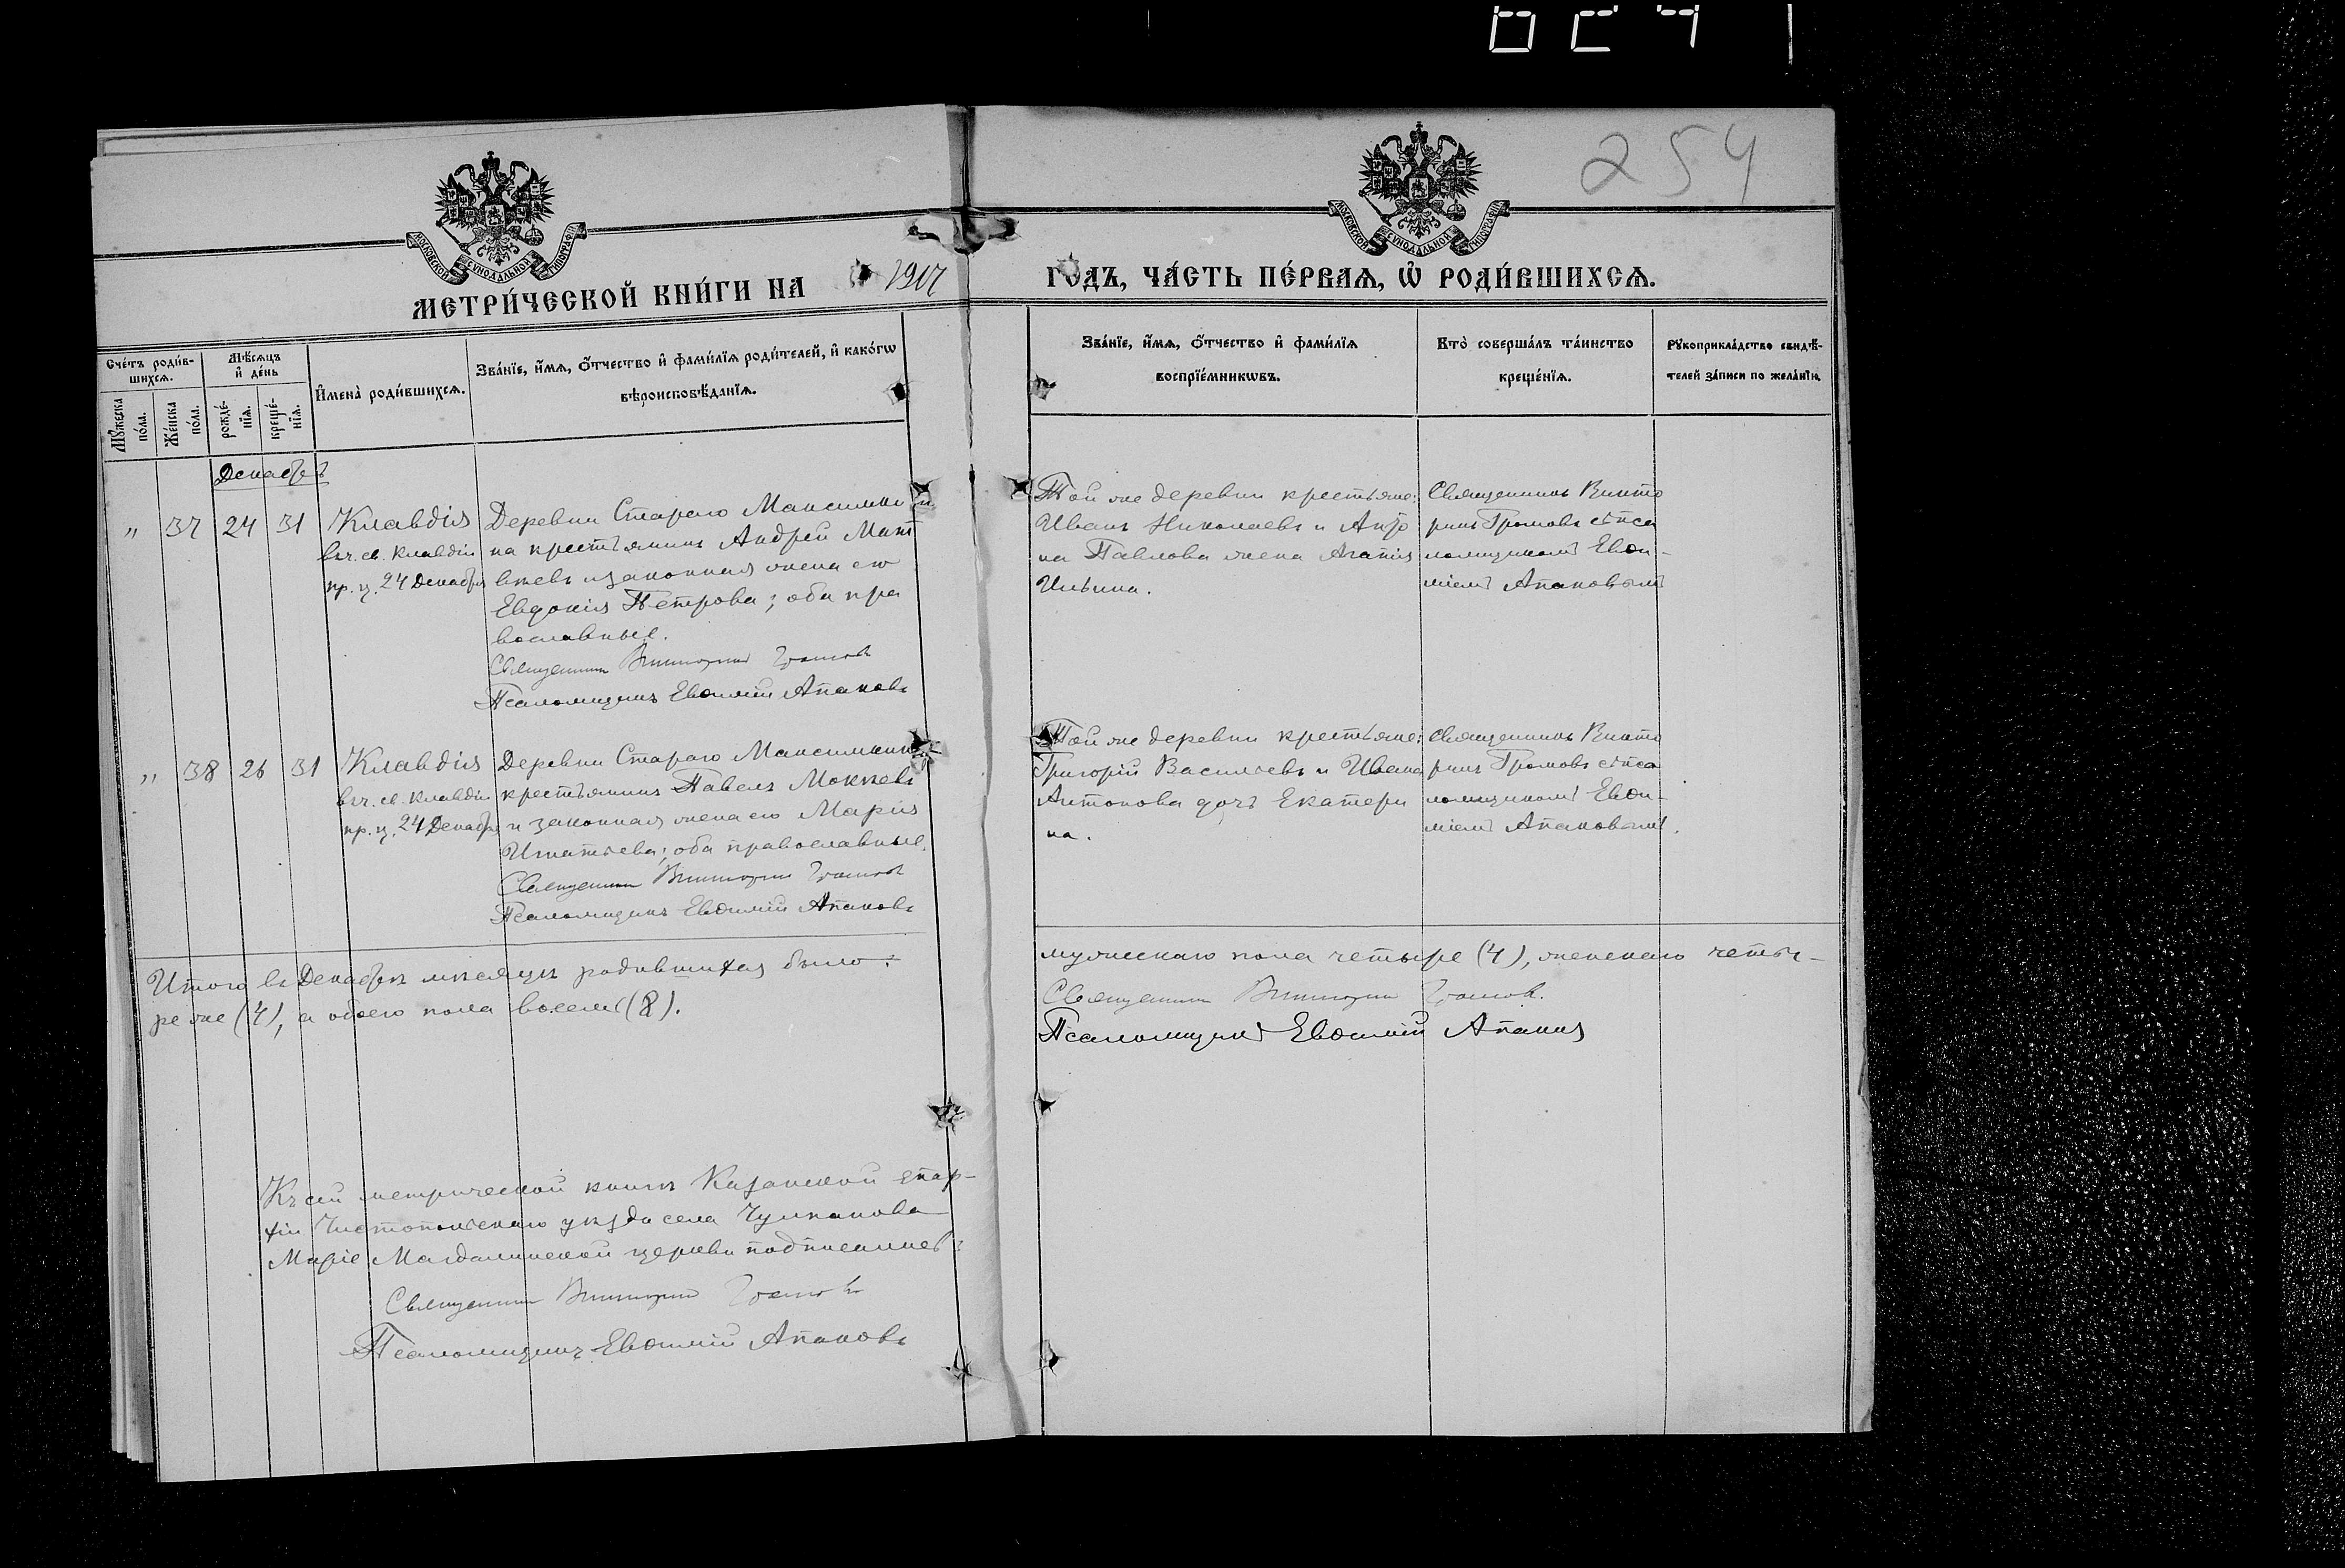 254
МОСКОВСКОЙ СУНОДАЛЬНОЙ ТИПОГРАФІИ
МОСКОВСКОЙ СУНОДАЛЬНОЙ ТИПОГРАФІИ
МЕТРИ́ЧЕСКОЙ КНИ́ГИ НА 1917 ГО́ДЪ, ЧА́СТЬ ПЕ́РВАѦ, Ѡ҆ РОДИ́ВШИХСѦ.
Сче́тъ роди́в-
шихсѧ.
Мѣ́сѧцъ
и҆ де́нь
Мꙋ́жеска
по́ла.
Же́нска
по́ла.
рожде́-
нїѧ.
креще́-
нїѧ.
И҆мена̀ роди́вшихсѧ.
Зва́нїе, и҆́мѧ, ѻ҆́тчество и҆ фами́лїѧ роди́телей, и҆ како́гѡ
вѣроисповѣ́данїѧ.
Зва́нїе, и҆́мѧ, ѻ҆́тчество и҆ фами́лїѧ
воспрїе́мникѡвъ.
Кто̀ соверша́лъ та́инство
креще́нїѧ.
Рꙋкоприкла́дство свидѣ́-
телей за́писи по жела́нїю.
Декабрь
" 37 24 31
Клавдія
въ ч. св. Клавдіи
пр. ц. 24 Декабря
Деревни Стараго Максимки
на крестьянинъ Андрей Мат
вѣевъ и законная жена его
Евдокія Петрова; оба пра
вославные.
Священникъ Викторинъ Громовъ
Псаломщикъ Евѳимій Апаковъ
Той же деревни крестьяне:
Иванъ Николаевъ и
на Павлова жена Агапія
Ильина.
Священникъ Викто
ринъ Громовъ съ пса
ломщикомъ Евѳи-
міемъ Апаковымъ
" 38 26 31
Клавдія
въ ч. св. Клавдіи
пр. ц. 24 Декабря
Деревни Стараго Максимкина
крестьянинъ Павелъ Мокѣевъ
и законная жена его Марія
Игнатьева; оба православные.
Священникъ Викторинъ Громовъ
Псаломщикъ Евѳимій Апаковъ
Той же деревни крестьяне:
Григорій Васильевъ и Ивана
Антонова дочь Екатери
на.
Священникъ Викто
ринъ Громовъ съ пса
ломщикомъ Евѳи-
міемъ Апаковымъ.
Итого въ Декабрѣ мѣсяцѣ родившихся было: мужескаго пола четыре (4), женскаго четы-
ре же (4), а обоего пола восемь (8).
Священникъ Викторинъ Громовъ.
Псаломщикъ Евѳимій Апаковъ
Къ сей метрической книгѣ Казанской епар-
хіи Чистопольскаго уѣзда села Чулпанова
Маріе Магдалинской церкви подписались:
Священникъ Викторинъ Громовъ
Псаломщикъ Евѳимій Апаковъ